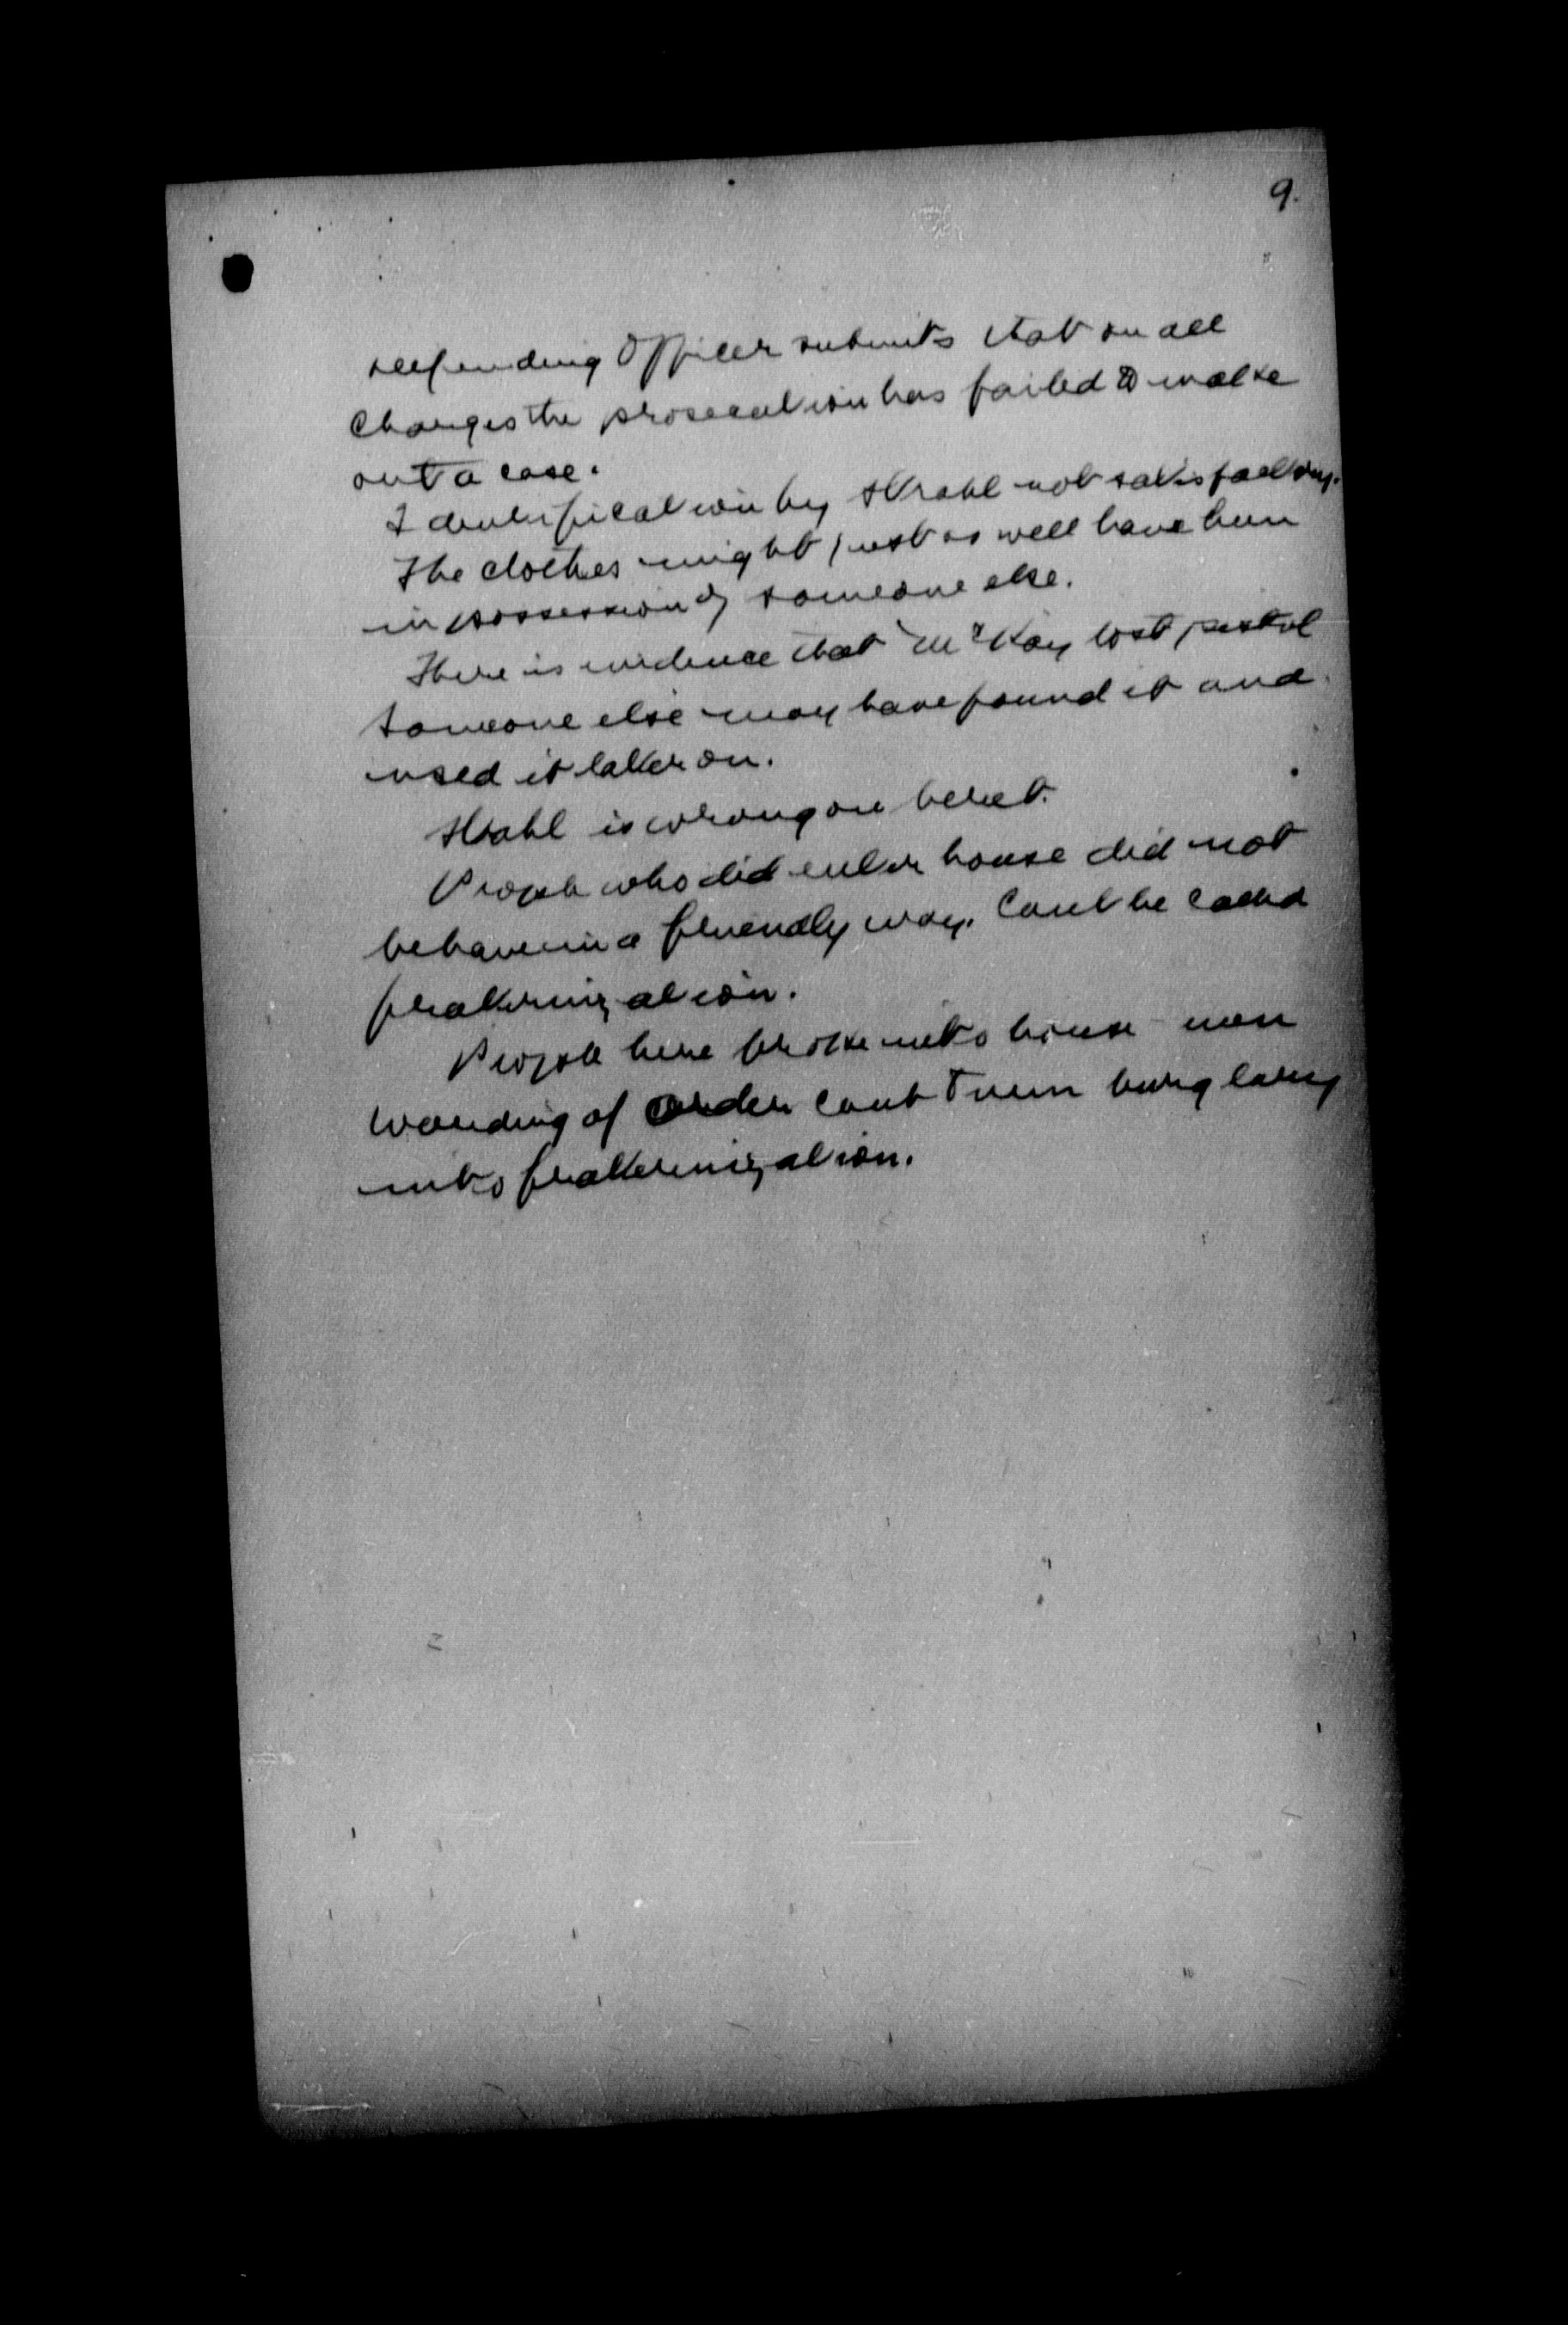 9.
defending Officer submits that on all
charges the prosecution has failed to make
out a case.
Identification by Strahl not satisfactory.
The clothes might just as well have been
in possession of someone else.
There is evidence that McKay lost pistol
someone else may have found it and
used it later on.
Strahl is wrong on beret.
People who did enter house did not
behave in a friendly way. Cant be called
fraternization.
People here broke into house
wording of order cant turn burglary
into fraternization.